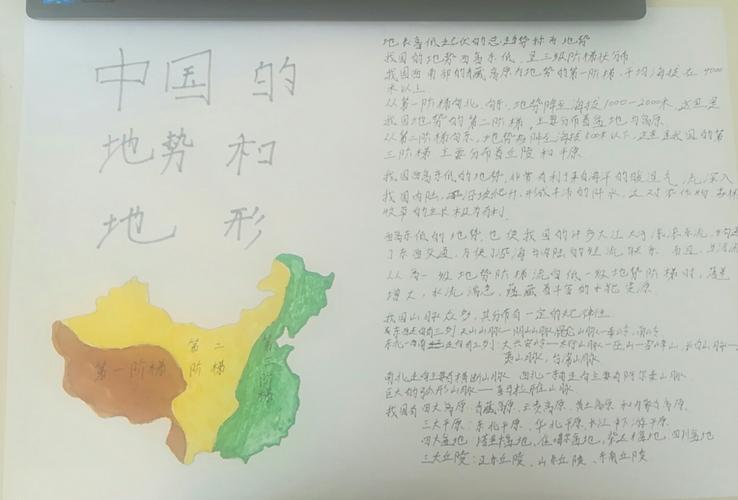 中国的
地势和
地形
第一阶梯
第二
阶梯
第三阶梯
地表高低起伏的总趋势称为地势
我国的地势西高东低，呈三级阶梯状分布
我国西南部的青藏高原为地势的第一阶梯，平均海拔在4000
米以上
从第一阶梯向北、向东，地势降至海拔1000-2000米，这里是
我国地势的第二阶梯，主要分布着盆地与高原
从第二阶梯向东，地势降至海拔500米以下，这里是我国的第
三阶梯，主要分布着丘陵和平原
我国西高东低的地势，非常有利于来自海洋的暖湿气流深入
我国内陆，沿坡爬升，形成丰沛的降水，这对农作物
牧草的生长极为有利
西高东低的地势，也使我国的许多大江大河滚滚东流，沟通
了东西交通，方便了沿海与内陆的经济联系
从高一级地势阶梯流向低一级地势阶梯时，落差
增大，水流湍急，蕴藏着丰富的水能资源
我国山脉众多，其分布有一定的规律性
东西走向有三列：天山山脉—阴山山脉，昆仑山脉—秦岭，南岭
东北—西南走向有三列：大兴安岭—太行山脉—巫山—雪峰山，长白山脉—武
夷山脉，台湾山脉
南北走向主要有横断山脉 西北—东南走向主要有阿尔泰山脉
巨大的弧形山脉——喜马拉雅山脉
我国有四大高原：青藏高原、云贵高原、黄土高原和内蒙古高原
三大平原：东北平原、华北平原、长江中下游平原
四大盆地：塔里木盆地、准噶尔盆地、柴达木盆地、四川盆地
三大丘陵：辽东丘陵、山东丘陵、东南丘陵